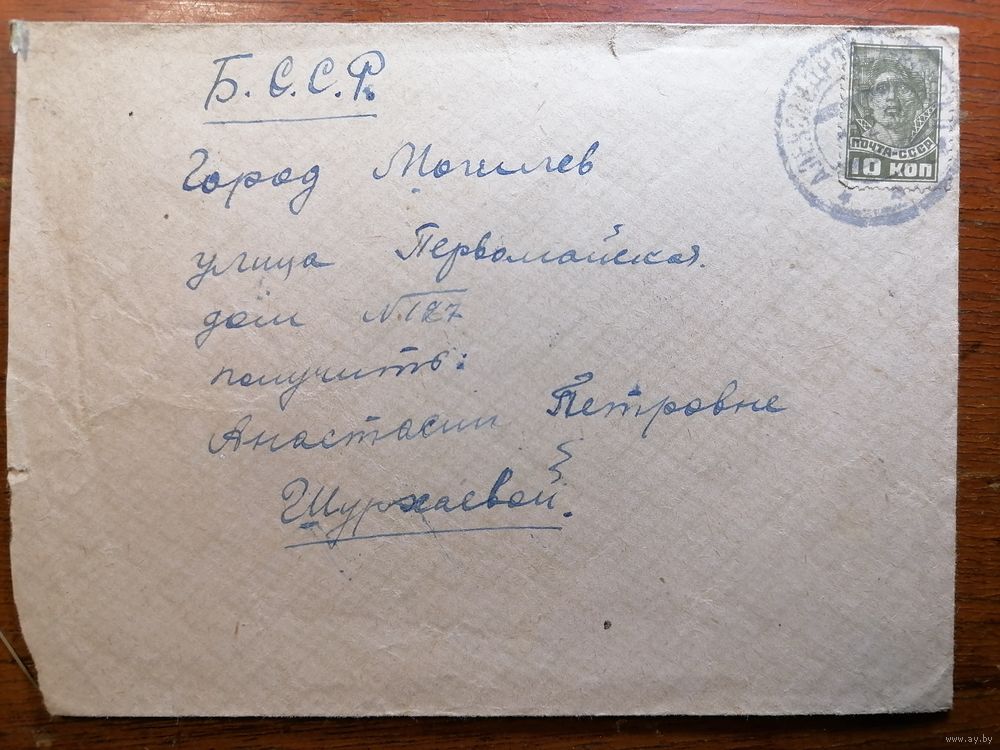 Б. С. С. Р.
Город Могилев
улица Первомайская.
дом № 127
получить:
Анастасии Петровне
Шурхаевой.
ПОЧТА-СССР
10 КОП
www.ay.by